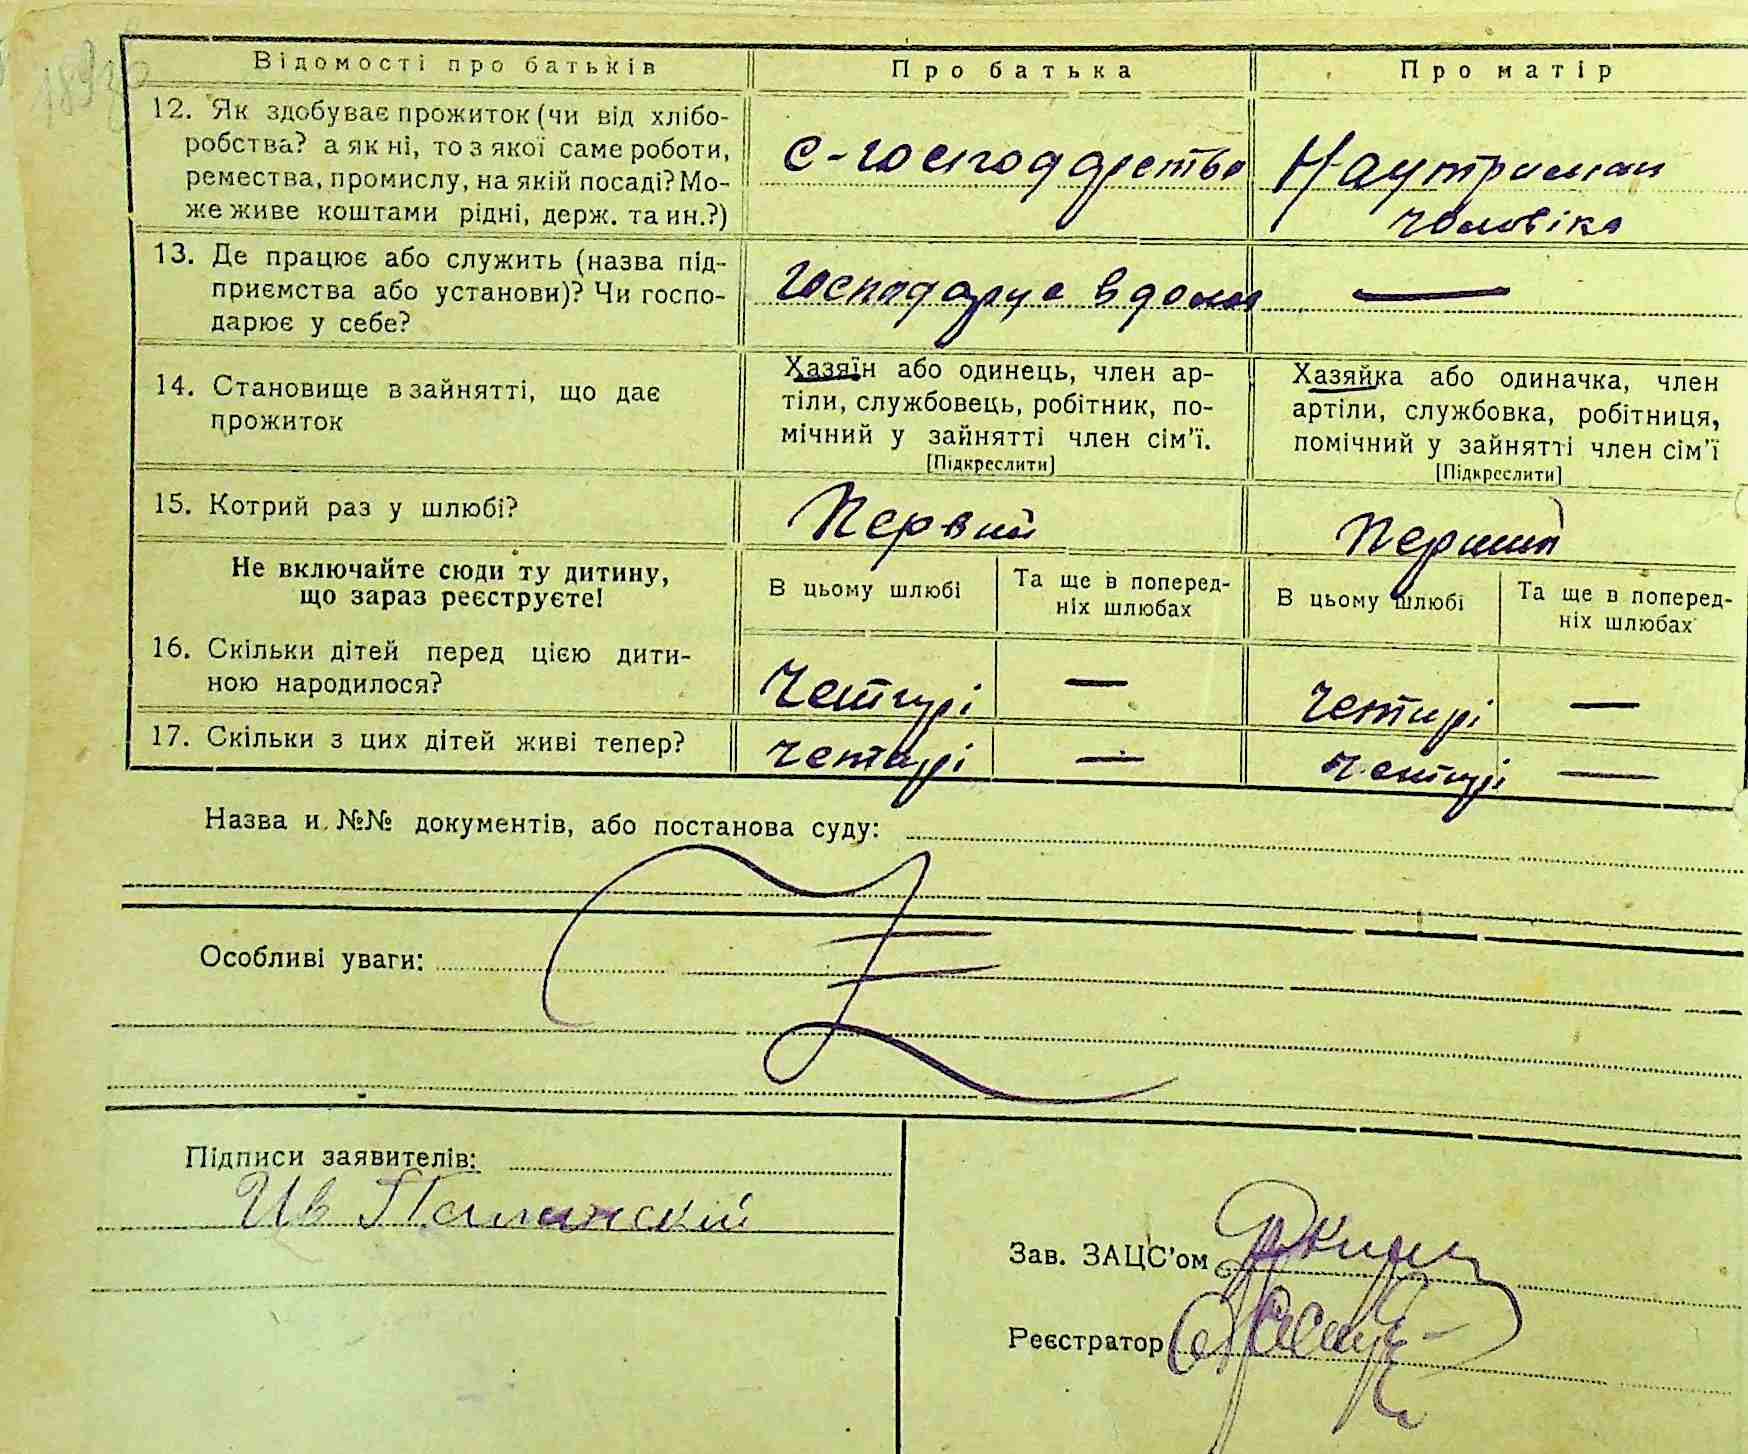 Відомості про батьків Про батька Про матір
12. Як здобуває прожиток (чи від хлібо-
робства? а як ні, то з якої саме роботи,
ремества, промислу, на якій посаді? Мо-
же живе коштами рідні, держ. та ин.?)
с-господдрство
На утриман
чоловіка
13. Де працює або служить (назва під-
приємства або установи)? Чи госпо-
дарює у себе?
Господарує вдома
—
14. Становище в зайнятті, що дає
прожиток
Хазяїн або одинець, член ар-
тіли, службовець, робітник, по-
мічний у зайнятті член сім'ї.
[Підкреслити]
Хазяйка або одиначка, член
артіли, службовка, робітниця,
помічний у зайнятті член сім'ї
[Підкреслити]
15. Котрий раз у шлюбі?
Первий
Перший
Не включайте сюди ту дитину,
що зараз реєструєте!
В цьому шлюбі
Та ще в поперед-
ніх шлюбах
В цьому шлюбі
Та ще в поперед-
ніх шлюбах
16. Скільки дітей перед цією дити-
ною народилося?
Четирі — четирі —
17. Скільки з цих дітей живі тепер?
четирі — четирі —
Назва и №№ документів, або постанова суду:
Особливі уваги:
Підписи заявителів:
Ив
Зав. ЗАЦС'ом
Реєстратор